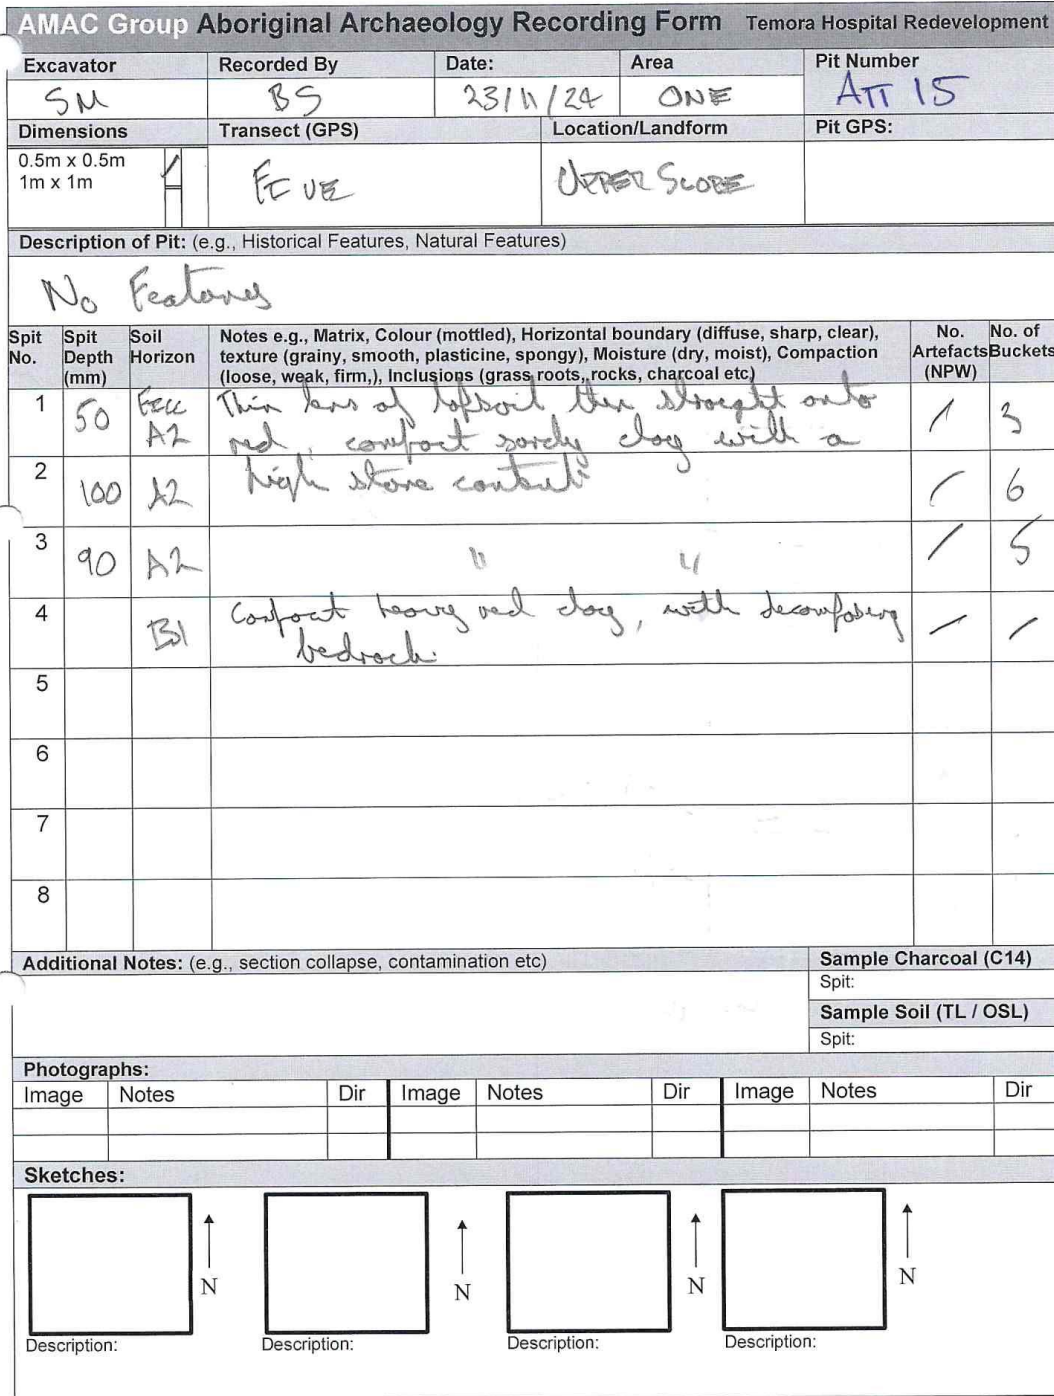 AMAC Group Aboriginal Archaeology Recording Form Temora Hospital Redevelopment
Excavator Recorded By Date: Area Pit Number
SM BS 23/11/24 ONE ATT 15
Dimensions Transect (GPS) Location/Landform Pit GPS:
0.5m x 0.5m
1m x 1m
FIVE UPPER SLOPE
Description of Pit: (e.g., Historical Features, Natural Features)
No Features
Spit No. Spit Depth (mm) Soil Horizon Notes e.g., Matrix, Colour (mottled), Horizontal boundary (diffuse, sharp, clear), texture (grainy, smooth, plasticine, spongy), Moisture (dry, moist), Compaction (loose, weak, firm,), Inclusions (grass roots, rocks, charcoal etc) No. Artefacts (NPW) No. of Buckets
1 50 A2 Thin lens of topsoil then straight onto / 3
red, compact sandy clay with a
2 100 A2 high stone content. / 6
3 90 A2 " " / 5
4 B1 Compact heavy red clay, with decomposing / /
bedrock.
5
6
7
8
Additional Notes: (e.g., section collapse, contamination etc) Sample Charcoal (C14)
Spit:
Sample Soil (TL / OSL)
Spit:
Photographs:
Image Notes Dir Image Notes Dir Image Notes Dir
Sketches:
N N N N
Description: Description: Description: Description: